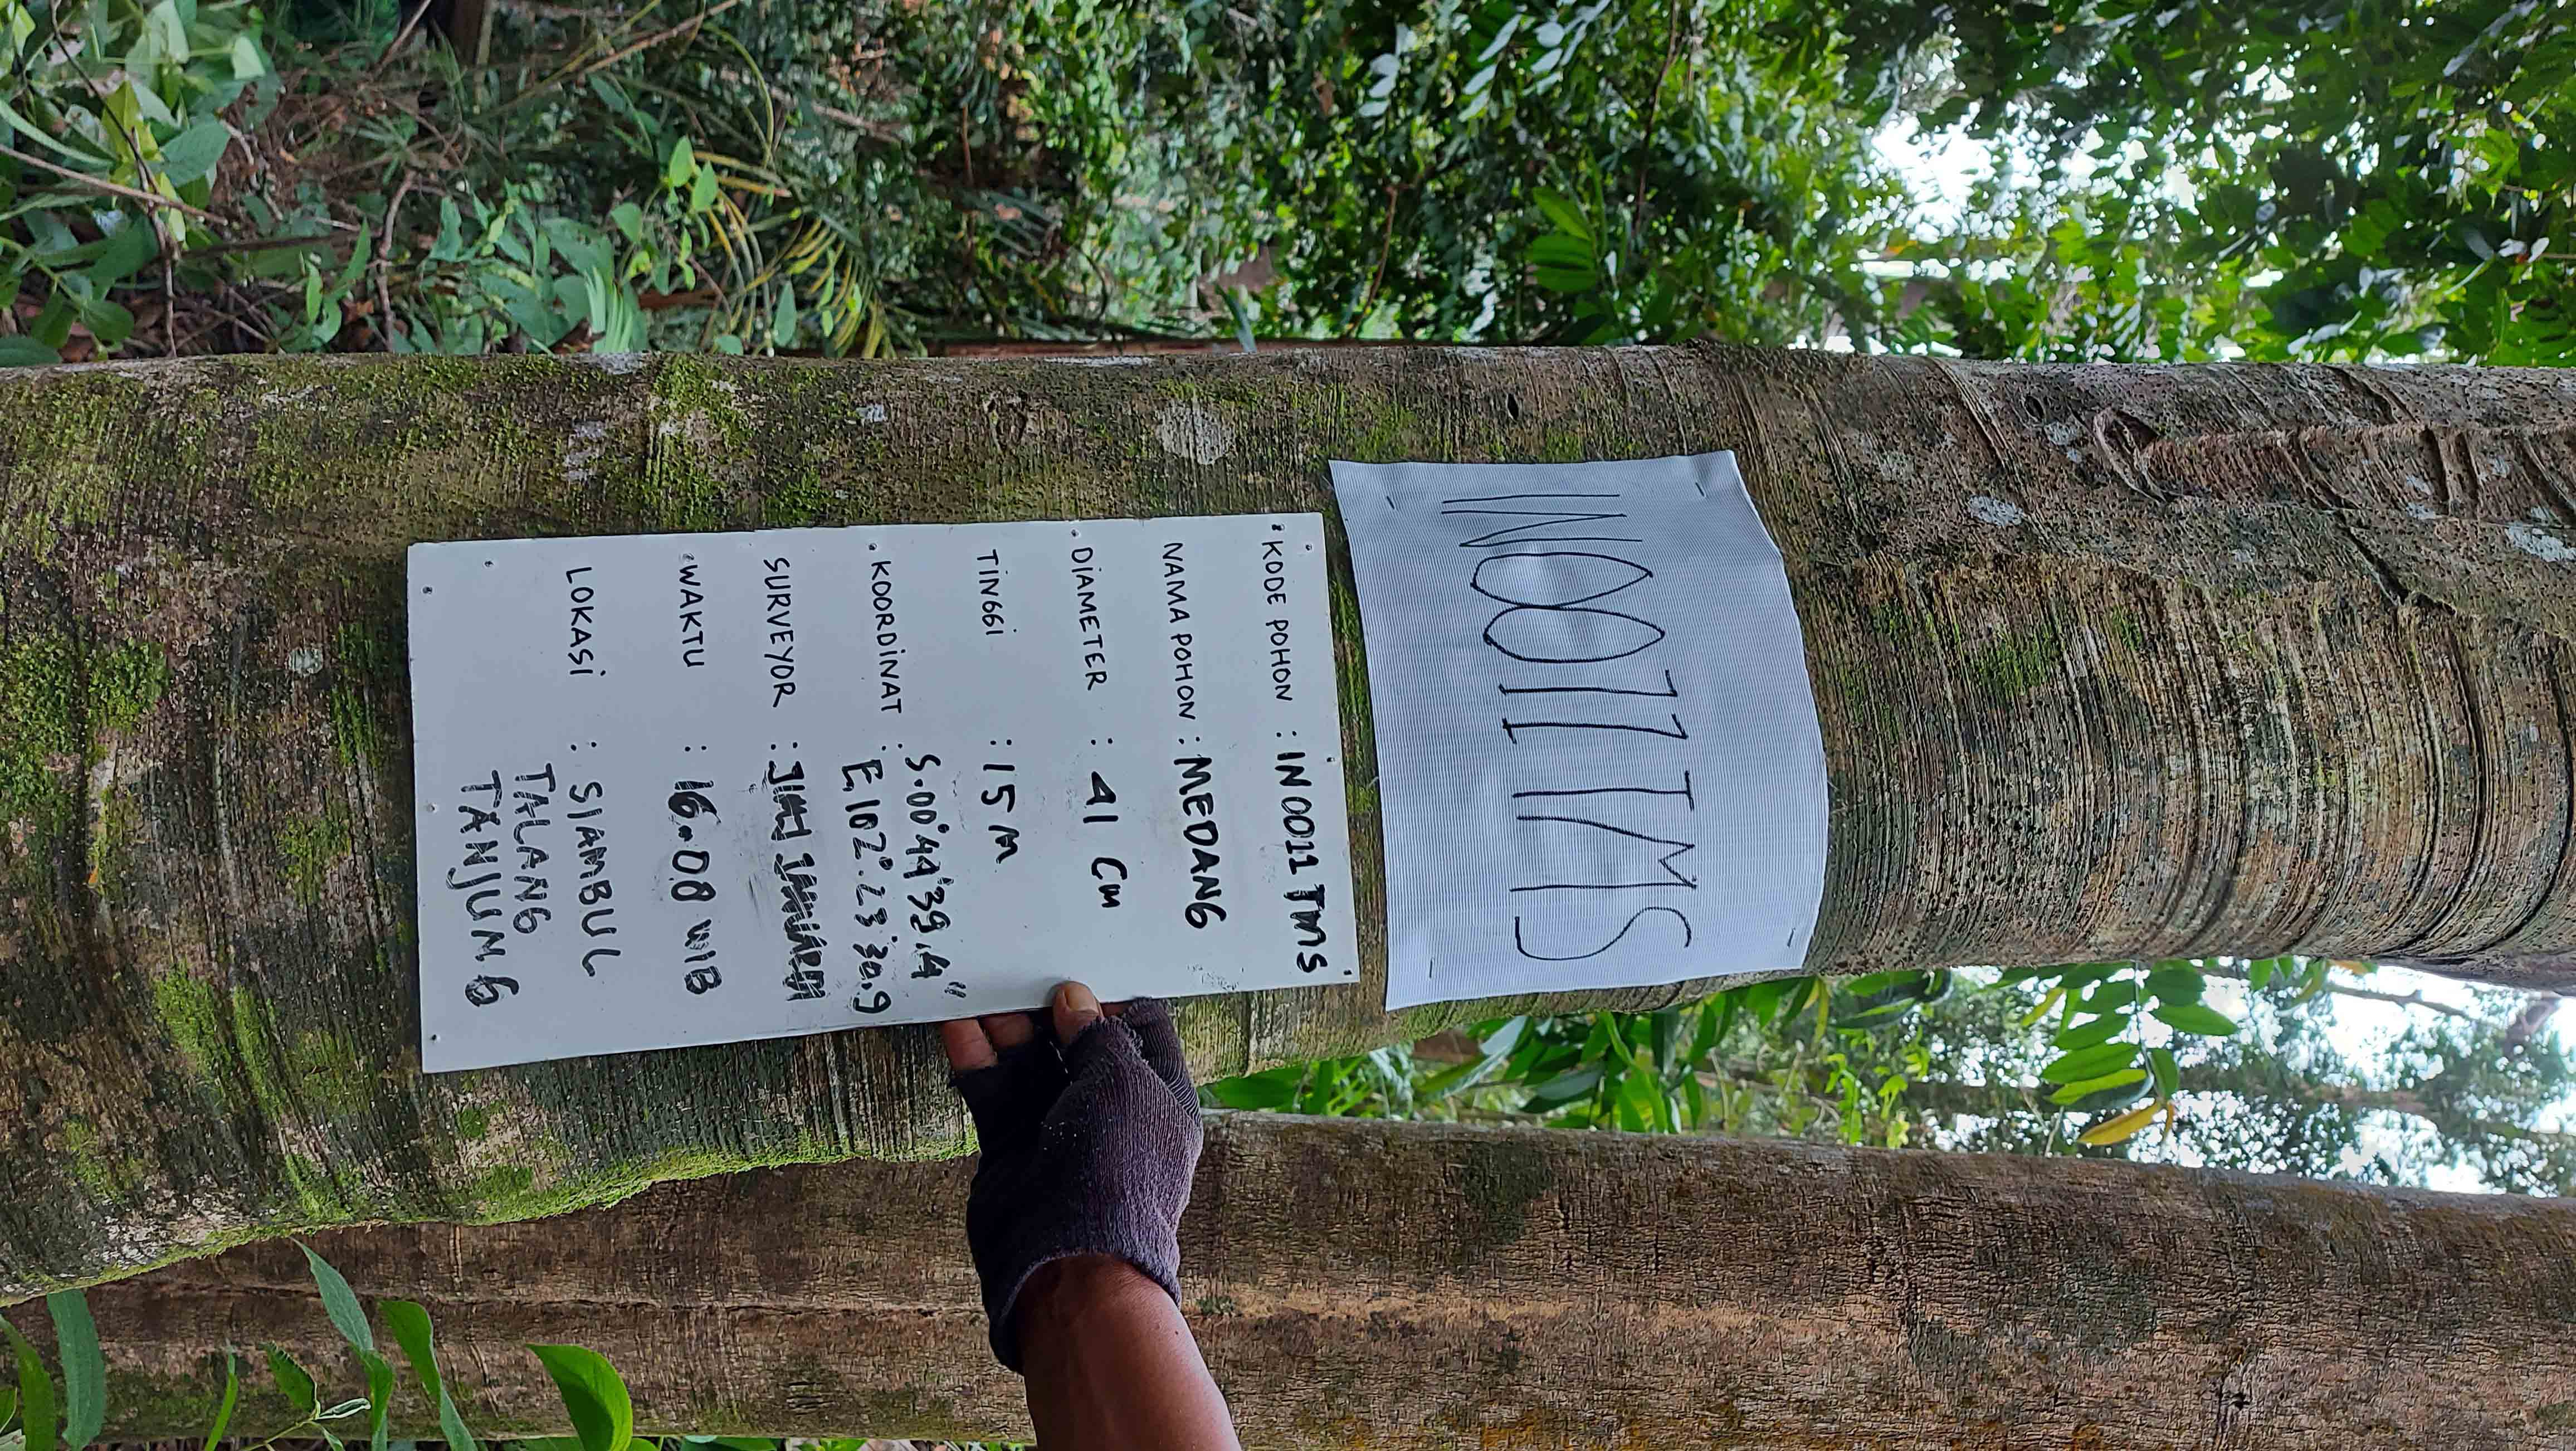 IN0011TMS
KODE POHON : IN0011 TMS
NAMA POHON : MEDANG
DIAMETER : 41 Cm
TINGGI : 15 M
S.00°44'39.4"
KOORDINAT :
E.102°.23'30.9
SURVEYOR : JANUARDI
WAKTU : 16.08 WIB
LOKASI : SIAMBUL
TALANG
TANJUNG